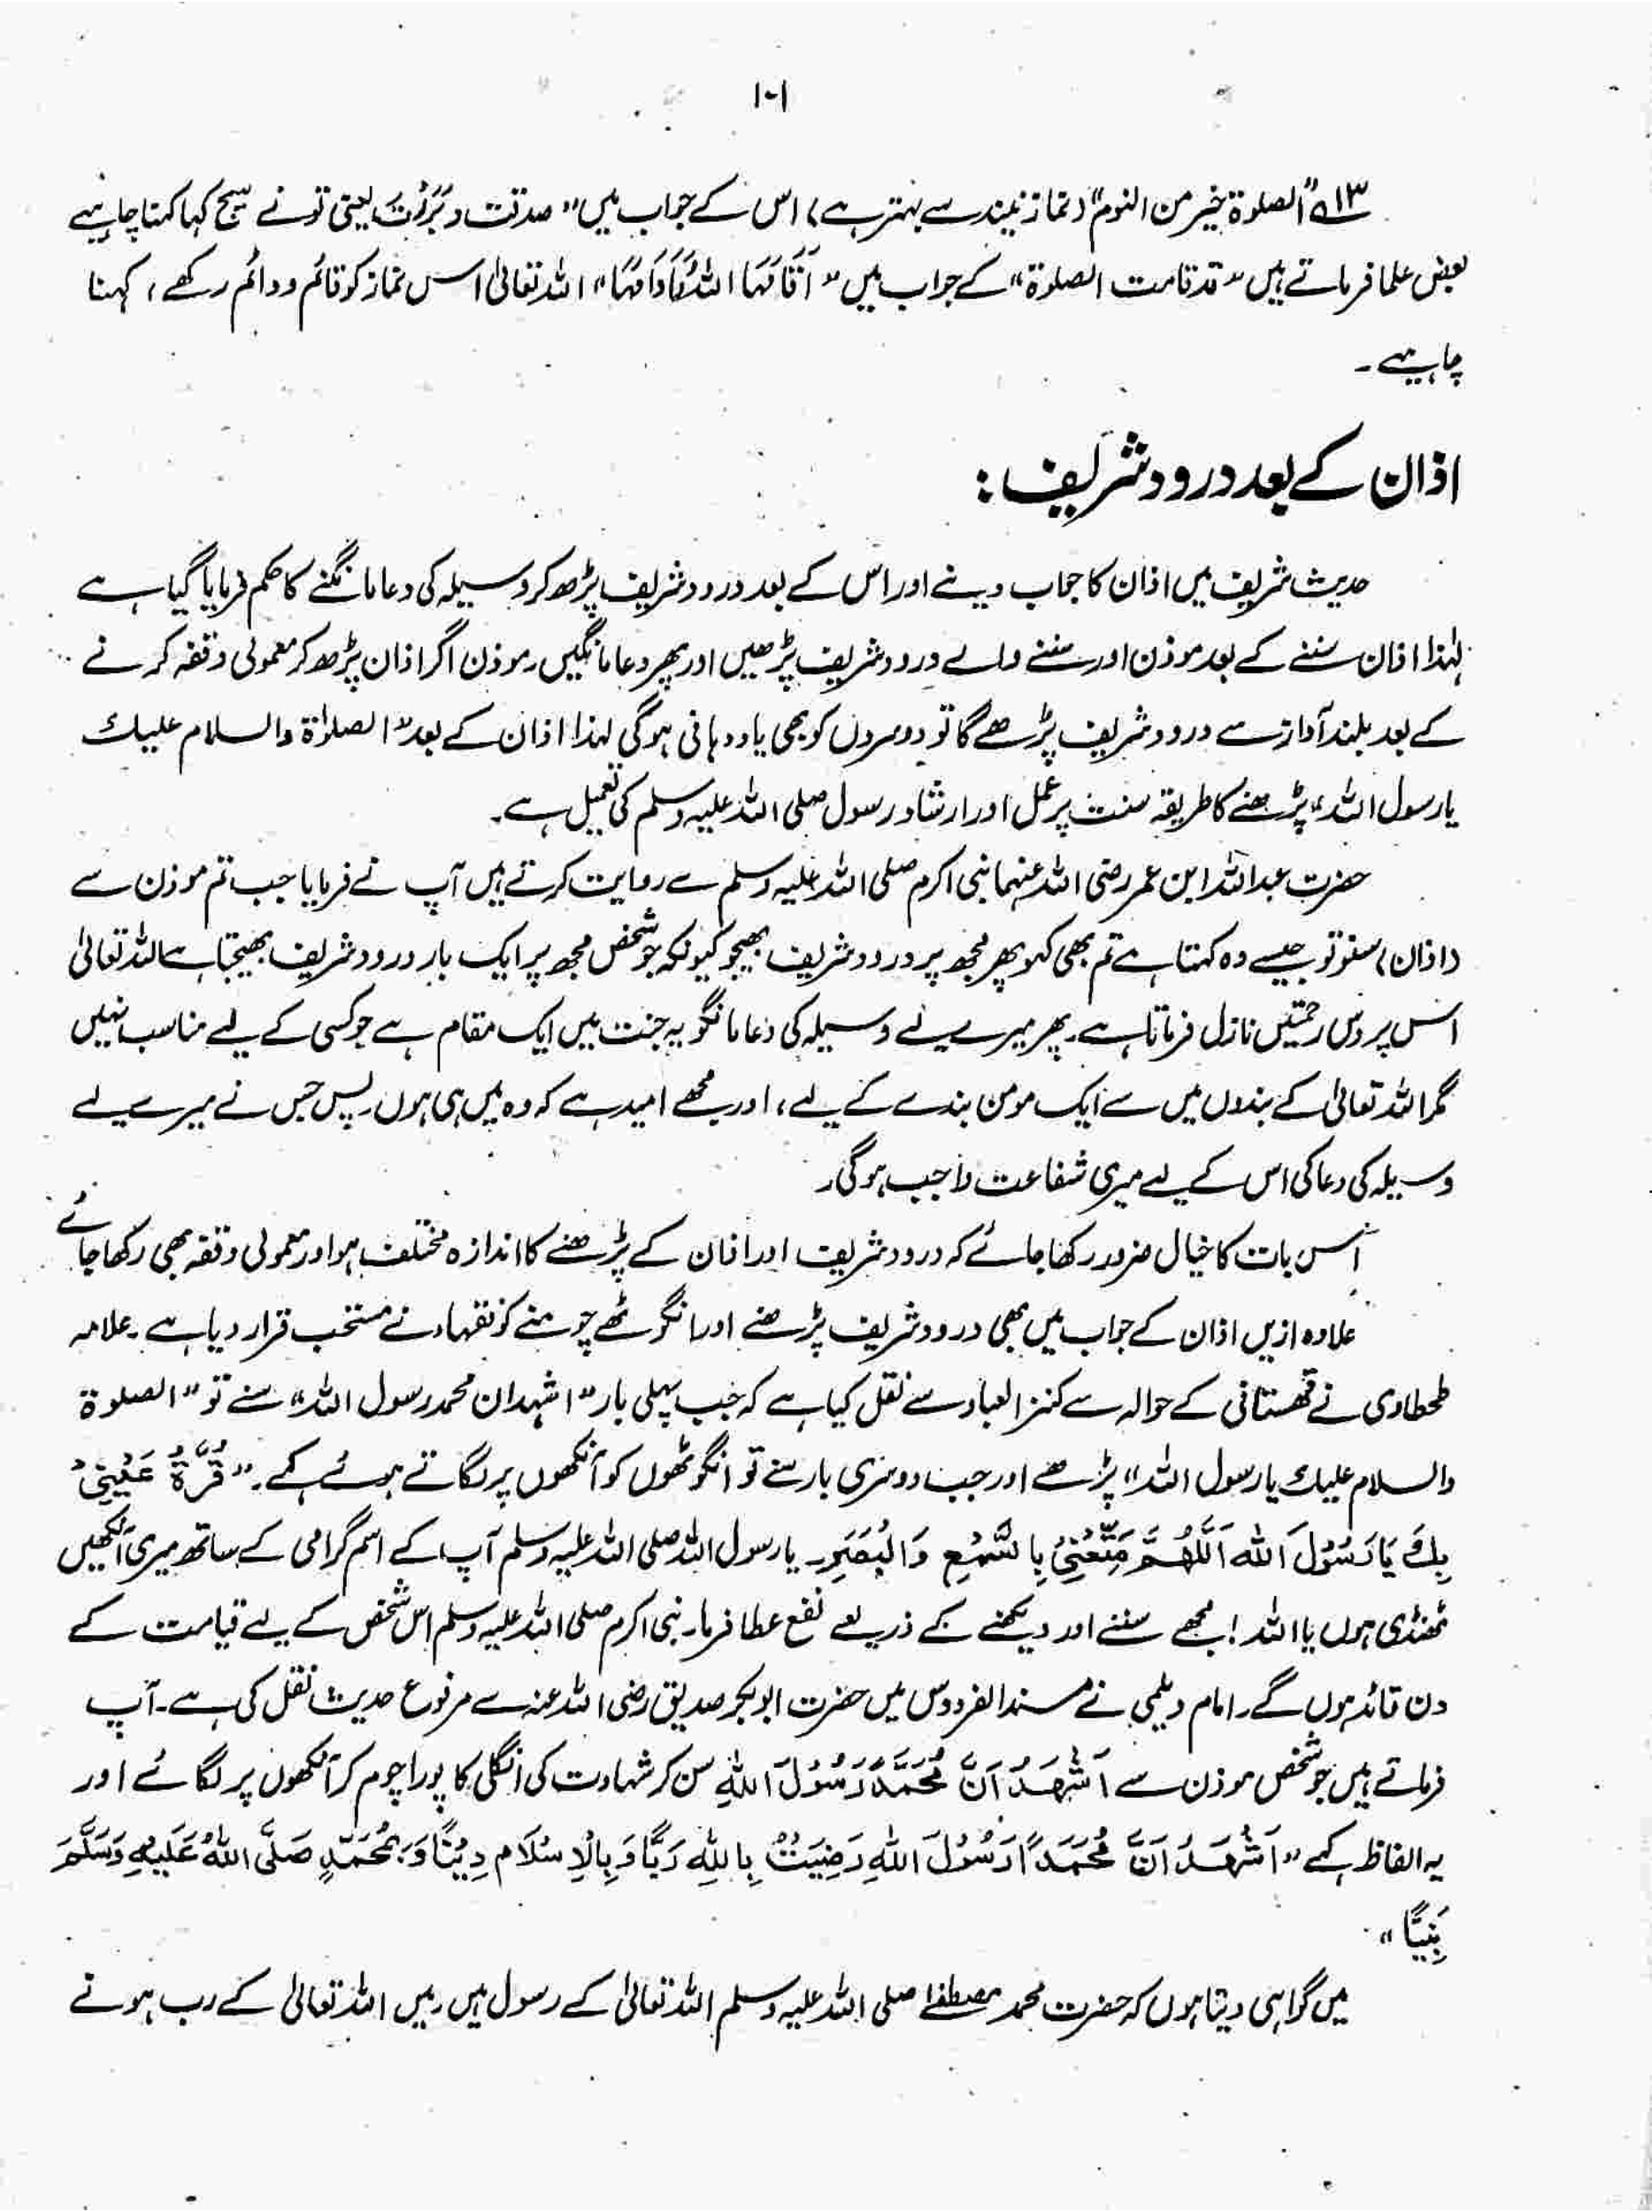 ۱۰۱
۱۳؎ "الصلوۃ خیر من النوم" (نماز نیند سے بہتر ہے) اس کے جواب میں "صدقت وَبَرَرْتَ یعنی تو نے سچ کہا کہنا چاہیے
بعض علما فرماتے ہیں "قد قامت الصلوۃ" کے جواب میں "اَقَامَہَا اللہُ وَاَدَامَہَا" اللہ تعالیٰ اس نماز کو قائم و دائم رکھے، کہنا
چاہیے۔
اذان کے بعد درود شریف:
حدیث شریف میں اذان کا جواب دینے اور اس کے بعد درود شریف پڑھ کر وسیلہ کی دعا مانگنے کا حکم فرمایا گیا ہے
لہٰذا اذان سننے کے بعد موذن اور سننے والے درود شریف پڑھیں اور پھر دعا مانگیں۔ موذن اگر اذان پڑھ کر معمولی وقفہ کرنے
کے بعد بلند آواز سے درود شریف پڑھے گا تو دوسروں کو بھی یاد دہانی ہوگی لہذا اذان کے بعد "الصلوٰۃ والسلام علیک
یا رسول اللہ" پڑھنے کا طریقہ سنت پر عمل اور ارشاد رسول صلی اللہ علیہ وسلم کی تعمیل ہے۔
حضرت عبداللہ ابن عمر رضی اللہ عنہما نبی اکرم صلی اللہ علیہ وسلم سے روایت کرتے ہیں آپ نے فرمایا جب تم موذن سے
(اذان) سنو تو جیسے وہ کہتا ہے تم بھی کہو پھر مجھ پر درود شریف بھیجو کیونکہ جو شخص مجھ پر ایک بار درود شریف بھیجتا ہے اللہ تعالیٰ
اس پر دس رحمتیں نازل فرماتا ہے۔ پھر میرے لئے وسیلہ کی دعا مانگو یہ جنت میں ایک مقام ہے جو کسی کے لیے مناسب نہیں
مگر اللہ تعالیٰ کے بندوں میں سے ایک مومن بندے کے لیے، اور مجھے امید ہے کہ وہ میں ہی ہوں۔ پس جس نے میرے لیے
وسیلہ کی دعا کی اس کے لیے میری شفاعت واجب ہوگی۔
اس بات کا خیال ضرور رکھا جائے کہ درود شریف اور اذان کے پڑھنے کا اندازہ مختلف ہو اور معمولی وقفہ بھی رکھا جائے
علاوہ ازیں اذان کے جواب میں بھی درود شریف پڑھنے اور انگوٹھے چومنے کو فقہاء نے مستحب قرار دیا ہے۔ علامہ
طحطاوی نے قہستانی کے حوالہ سے کنز العباد سے نقل کیا ہے کہ جب پہلی بار "اشہد ان محمد رسول اللہ" سنے تو "الصلوۃ
والسلام علیک یا رسول اللہ" پڑھے اور جب دوسری بار سنے تو انگوٹھوں کو آنکھوں پر لگاتے ہوئے کہے۔ "قُرَّۃُ عَیْنِیْ
بِکَ یَا رَسُوْلَ اللہ اَللّٰہُمَّ مَتِّعْنِیْ بِالسَّمْعِ وَالْبَصَرِ۔ یا رسول اللہ صلی اللہ علیہ وسلم آپ کے اسم گرامی کے ساتھ میری آنکھیں
ٹھنڈی ہوں یا اللہ! مجھے سننے اور دیکھنے کے ذریعے نفع عطا فرما۔ نبی اکرم صلی اللہ علیہ وسلم اس شخص کے لیے قیامت کے
دن قائد ہوں گے۔ امام دیلمی نے مسند الفردوس میں حضرت ابوبکر صدیق رضی اللہ عنہ سے مرفوع حدیث نقل کی ہے۔ آپ
فرماتے ہیں جو شخص موذن سے اَشْہَدُ اَنَّ مُحَمَّدًا رَسُوْلَ اللہِ سن کر شہادت کی انگلی کا پورا چوم کر آنکھوں پر لگائے اور
یہ الفاظ کہے "اَشْہَدُ اَنَّ مُحَمَّدًا رَسُوْلَ اللہِ رَضِیْتُ بِاللہِ رَبًّا وَبِالْاِسْلَامِ دِیْنًا وَبِمُحَمَّدٍ صَلَّی اللہُ عَلَیْہِ وَسَلَّمَ
نَبِیًّا"
میں گواہی دیتا ہوں کہ حضرت محمد مصطفےٰ صلی اللہ علیہ وسلم اللہ تعالیٰ کے رسول ہیں۔ میں اللہ تعالیٰ کے رب ہونے